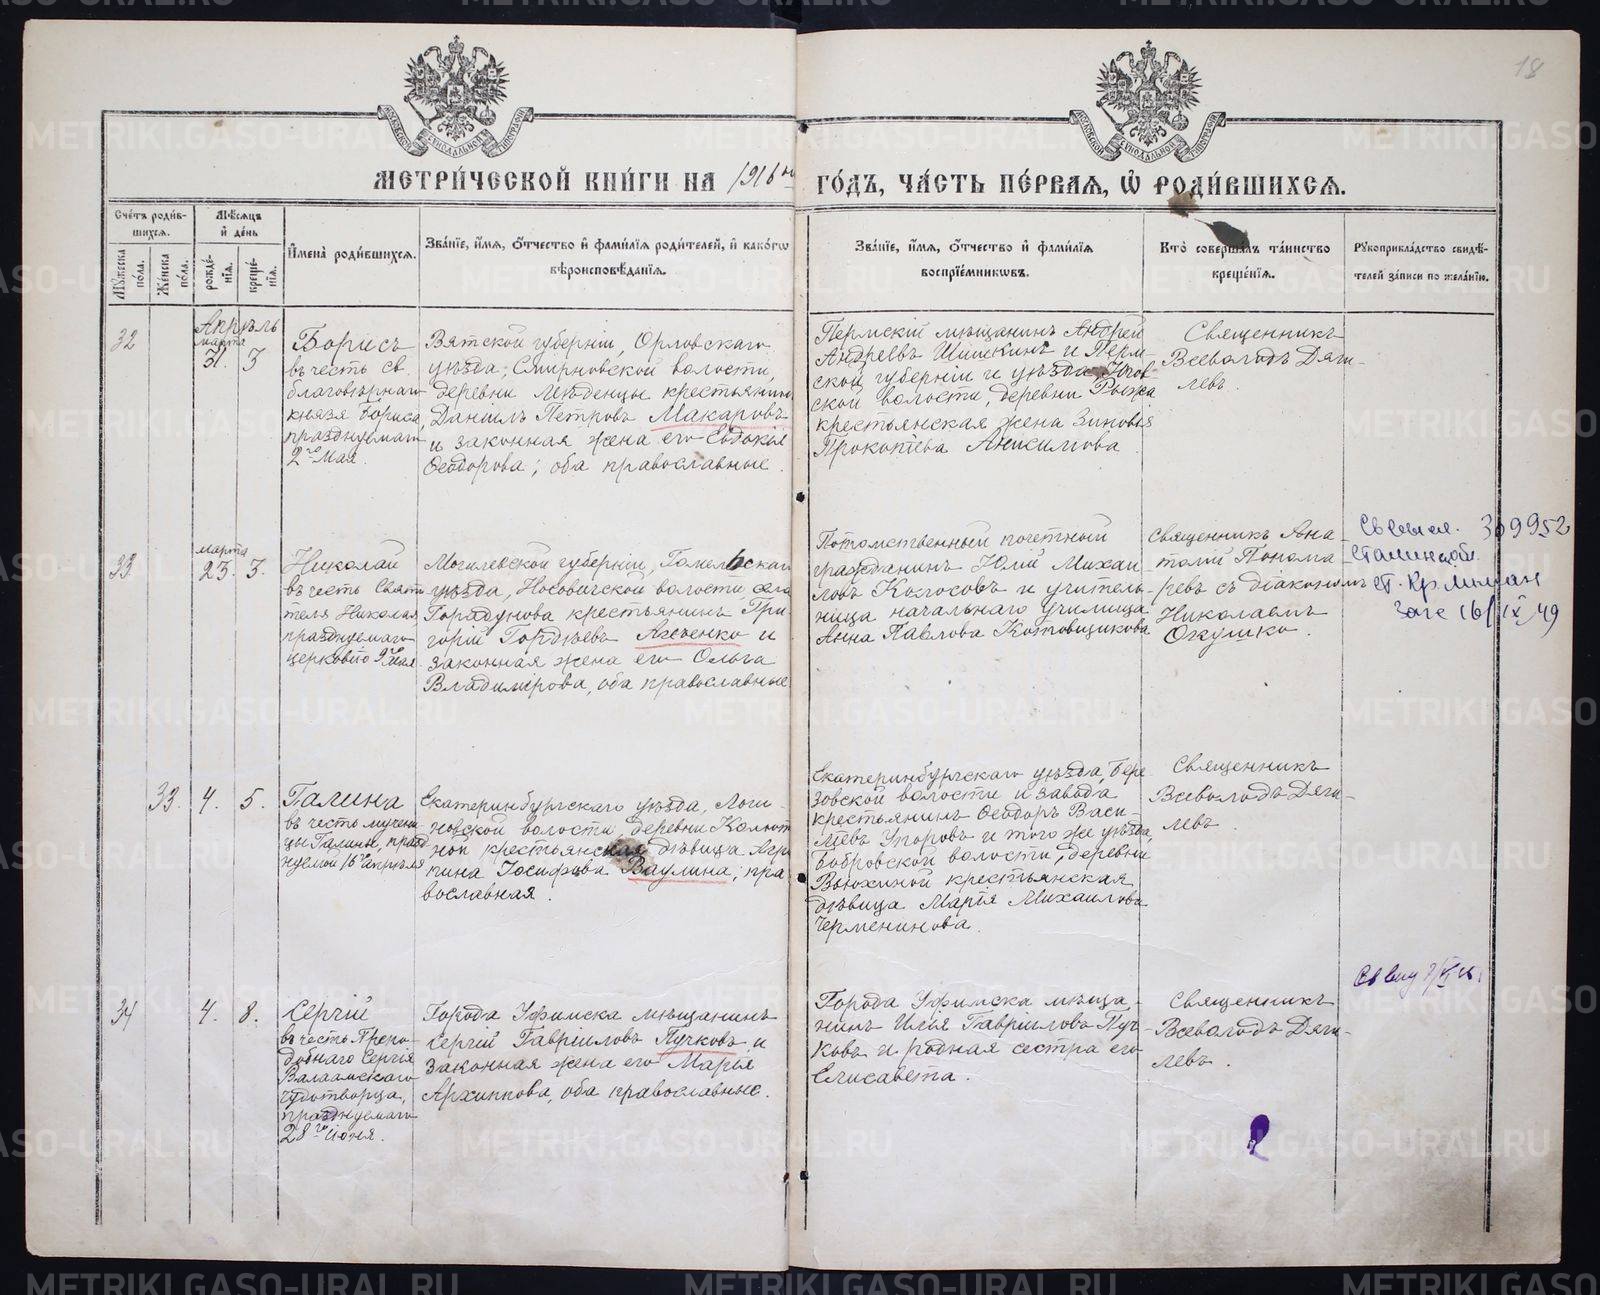 18
МЕТРИЧЕСКОЙ КНИГИ НА 1916 й ГОДЪ, ЧАСТЬ ПЕРВАЯ, Ѡ РОДИВШИХСЯ.
Счётъ родив-
шихся.
Мужеска пола.
Женска пола.
Мѣсяцъ и день
рожде-
нія.
креще-
нія.
Имена родившихся.
Званіе, имя, отчество и фамилія родителей, и какогѡ
вѣроисповѣданія.
Званіе, имя, отчество и фамилія
воспріемникѡвъ.
Кто совершалъ таинство
крещенія.
Рукоприкладство свидѣ-
телей записи по желанію.
Апрѣль
32
марта
31. 3
Борисъ
въ честь св.
благовѣрнаго
князя Бориса,
празднуемаго
2го Мая.
Вятской губерніи, Орловскаго
уѣзда, Смирновской волости,
деревни крестьянинъ
Даніилъ Петровъ Макаровъ
и законная жена его Евдокія
Ѳеодорова; оба православные.
Пермскій мѣщанинъ Андрей
Андреевъ Шишкинъ и Перм-
ской губерніи и уѣзда, Югов-
ской волости, деревни Рыжа
крестьянская жена Зиновія
Прокопіева Анисимова
Священникъ
Всеволодъ Дяги-
левъ.
33
марта
23. 3.
Николай
въ честь Святи-
теля Николая,
празднуемаго
церковію 9го мая.
Могилевской губерніи, Гомельскаго
уѣзда, Носовичской волости, села
Горадунова крестьянинъ Гри-
горій Гордѣевъ Агѣенко и
законная жена его Ольга
Владимірова, оба православные
Потомственный почетный
гражданинъ Юлій Михаи-
ловъ Колосовъ и учитель-
ница начальнаго училища
Анна Павлова Котовщикова
Священникъ Ана-
толій Понома-
ревъ съ діакономъ
Николаемъ
Окушко.
309952
Сталинской
Загс 16/IX 49
33. 4. 5.
Галина
въ честь мучени-
цы Галины, празд-
нуемой 16го апрѣля
Екатеринбургскаго уѣзда, Логи-
новской волости, деревни Колют-
ной крестьянская дѣвица Агри-
пина Іосифова Ваулина, пра-
вославная.
Екатеринбургскаго уѣзда, Бере-
зовской волости и завода
крестьянинъ Ѳеодоръ Васи-
льевъ Упоровъ и того же уѣзда,
Бобровской волости, деревни
Вьюхиной крестьянская
дѣвица Марія Михаилова
Черменинова.
Священникъ
Всеволодъ Дяги-
левъ
34 4. 8.
Сергій
въ честь Препо-
добнаго Сергія
Валаамскаго
чудотворца,
празднуемаго
28го іюня.
Города Уфимска мѣщанинъ
Сергій Гавріиловъ Пучковъ и
законная жена его Марія
Архиппова, оба православные.
Города Уфимска мѣща-
нинъ Илія Гавріиловъ Пуч-
ковъ и родная сестра его
Елисавета.
Священникъ
Всеволодъ Дяги-
левъ.
METRIKI.GASO-URAL.RU